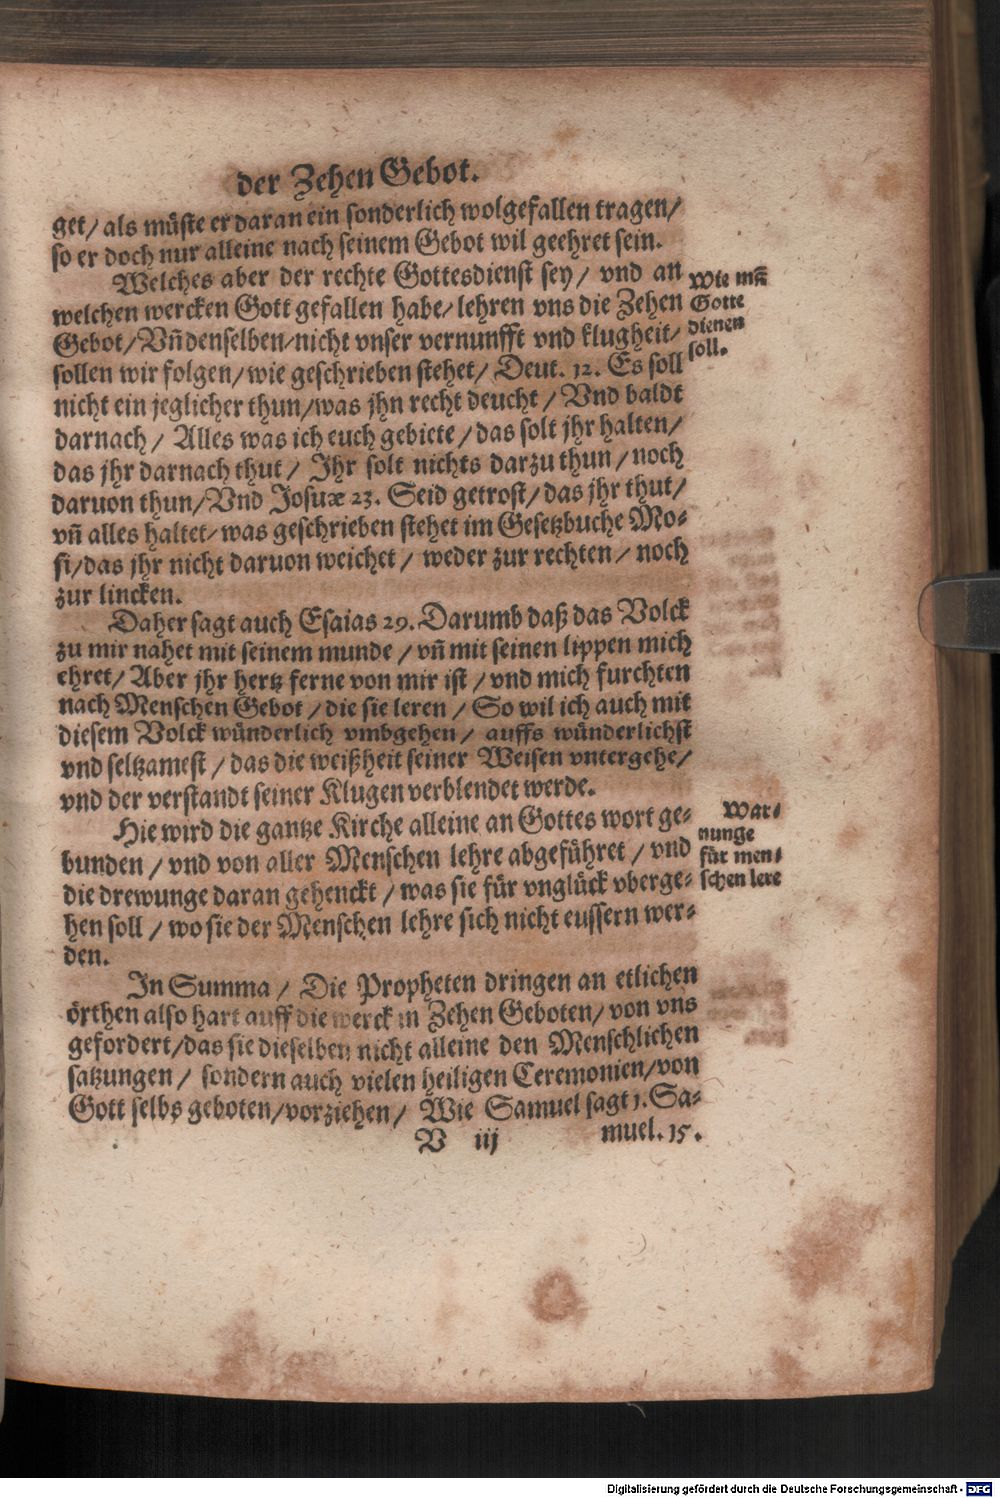 der Zehen Gebot.
get/ als müste er daran ein sonderlich wolgefallen tragen/
so er doch nur alleine nach seinem Gebot wil geehret sein.
Welches aber der rechte Gottesdienst sey/ vnd an
welchen wercken Gott gefallen habe/ lehren vns die Zehen
Gebot/ Vñ denselben/ nicht vnser vernunfft vnd klugheit/
sollen wir folgen/ wie geschrieben stehet/ Deut. 12. Es soll
nicht ein jeglicher thun/ was jhn recht deucht/ Vnd baldt
darnach/ Alles was ich euch gebiete/ das solt jhr halten/
das jhr darnach thut/ Jhr solt nichts darzu thun/ noch
daruon thun/ Vnd Josuæ 23. Seid getrost/ das jhr thut/
vñ alles haltet/ was geschrieben stehet im Gesetzbuche Mo-
si/ das jhr nicht daruon weichet/ weder zur rechten/ noch
zur lincken.
Wie mã
Gotte
dienen
soll.
Daher sagt auch Esaias 29. Darumb daß das Volck
zu mir nahet mit seinem munde/ vñ mit seinen lippen mich
ehret/ Aber jhr hertz ferne von mir ist/ vnd mich furchten
nach Menschen Gebot/ die sie leren/ So wil ich auch mit
diesem Volck wünderlich vmbgehen/ auffs wünderlichst
vnd seltzamest/ das die weißheit seiner Weisen vntergehe/
vnd der verstandt seiner Klugen verblendet werde.
Hie wird die gantze Kirche alleine an Gottes wort ge-
bunden/ vnd von aller Menschen lehre abgeführet/ vnd
die drewunge daran gehenckt/ was sie für vnglück vberge-
hen soll/ wo sie der Menschen lehre sich nicht eussern wer-
den.
War-
nunge
für men-
schen lere
In Summa/ Die Propheten dringen an etlichen
örthen also hart auff die werck in Zehen Geboten/ von vns
gefordert/ das sie dieselben nicht alleine den Menschlichen
satzungen/ sondern auch vielen heiligen Ceremonien/ von
Gott selbs geboten/ vorziehen/ Wie Samuel sagt 1. Sa-
V iij
muel. 15.
Digitalisierung gefördert durch die Deutsche Forschungsgemeinschaft - DFG